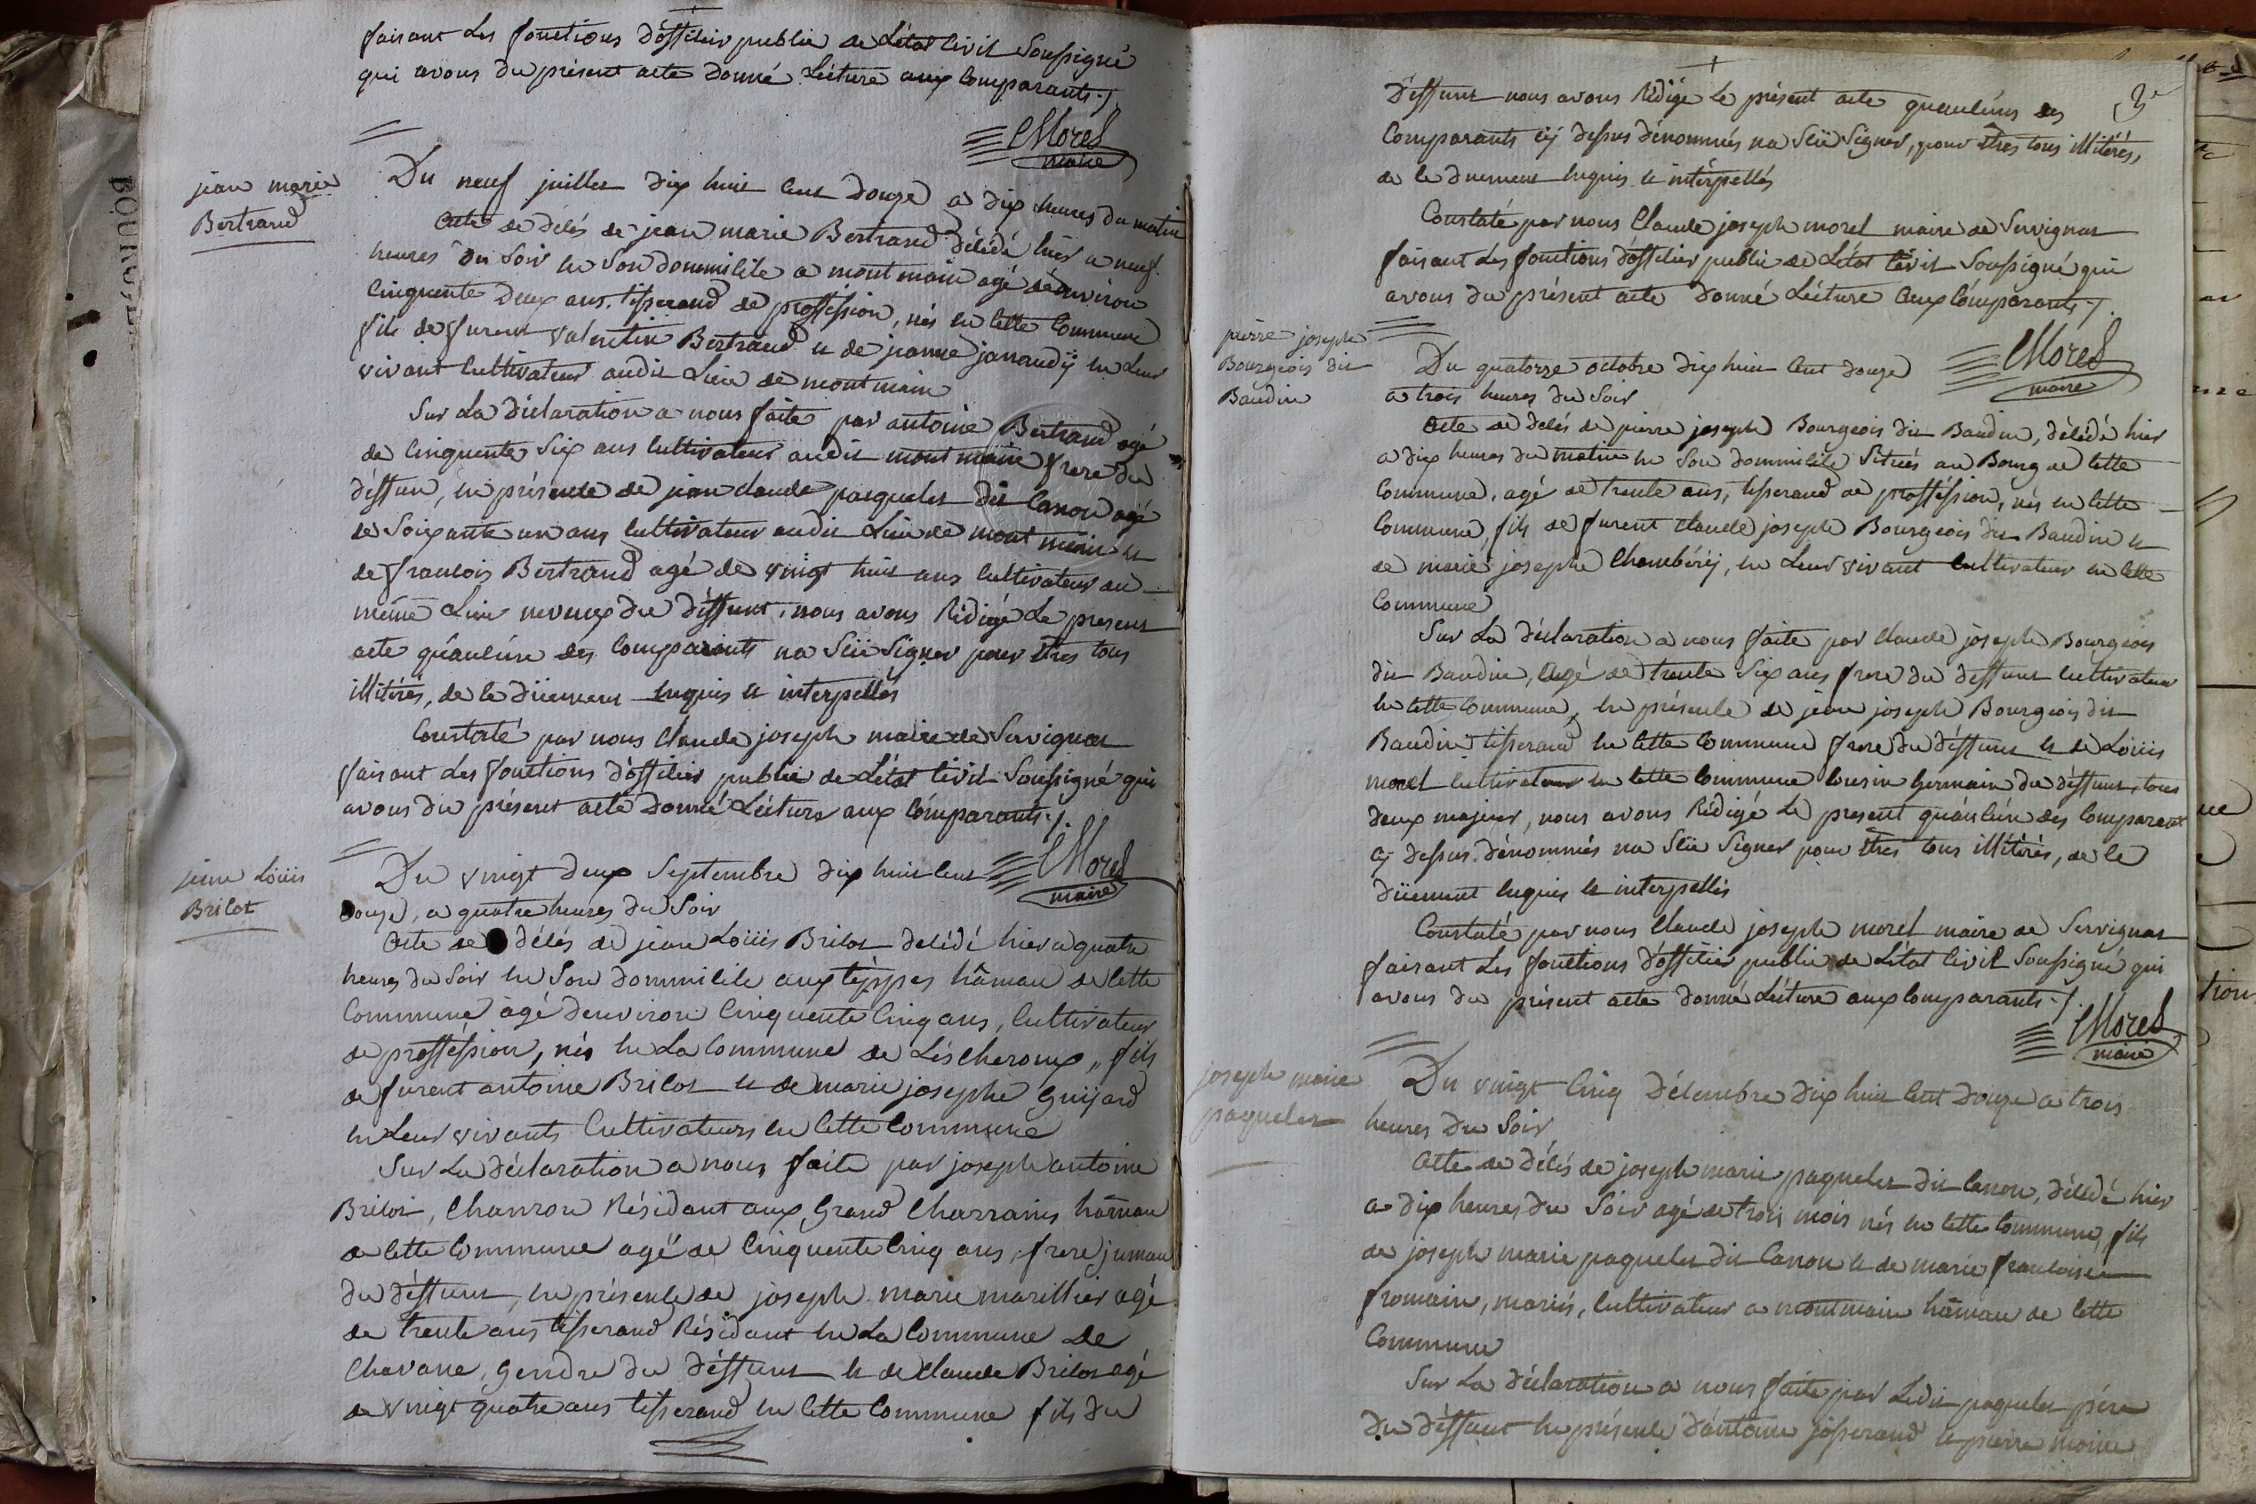 faisant Les fonctions d'offilier publie de L'état livil Soussigné
qui avons du présent acte donné Lecture aux Comparants ./.
CMorel
maire
jean marie
Bertrand
Du neuf juillet dix huit Cent douze a dix heures du matin
Acte de délés de jean marie Bertrand délédé hier a neuf
heures du Soir en Son dommilile a montmain agé d'environ
Cinquente deux ans, tisserand de proffession, nés en Cette Commune
fils de furent Valentin Bertrand et de jeanne janaudÿ en Leur
vivant Cultivateur audit Lieu de montmain
Sur La déclaration a nous faite par antoine Bertrand agé
de Cinquente Six ans Cultivateur audit montmain frere du
déffun, en présence de jean claude paquelet dit Canon agé
de Soixante un ans Cultivateur audit Lieu de montmain et
de francois Bertrand agé de vingt huit ans Cultivateur au
même Lieu neveux du déffunt, nous avons Rédigé Le present
acte qu'auCun des Comparants na Sçü Signer pour êtres tous
illitérés, de le düement Enquis et interpellés
Constaté par nous Claude joseph maire de Servignat
faisant Les fonctions d'offilier publie de L'état Civil Soussigné qui
avons du présent acte donné Lecture aux Comparants ./.
CMorel
maire
jean Loüis
Brilot
Du vingt deux Septembre dix huit Cent
douze, a quatre heures du Soir
Acte de délés de jean Loüis Brilot delédé hier a quatre
heures du Soir en Son dommilile aux téppes hâmau de Cette
Commune agé d'environ Cinquente Cinq ans, Cultivateur
de proffession, nés en La Commune de Lescheroux, fils
de furent antoine Brilot et de marie josephe Guijard
en Leur vivants Cultivateurs en Cette Commune
Sur La déclaration a nous faite par joseph antoine
Brilot, Chanron Résidant aux Grand Charrains hâmau
de Cette Commune agé de Cinquente Cinq ans, frere jumau
du déffunt, en présence de joseph marie marillier agé
de trente ans tisserand Résidant en La Commune de
Chavane, gendre du déffunt et de Claude Brilot agé
de vingt quatre ans tisserand en Cette Commune fils du
3e
Déffunt nous avons Rédigé Le présent acte qu'auCuns des
Comparants Cÿ dessus dénommés na Sçü Signer, pour êtres tous illitérés,
de le duement Enquis et intérpellés
Constaté par nous Claude joseph morel maire de Servignat
faisant Les fonctions d'offilier publie de L'état Civil Soussigné qui
avons du présent acte donné Lecture aux Comparants ./.
CMorel
maire
pierre joseph
Bourgeois dit
Baudin
Du quatorze octobre dix huit Cent douze
a trois heures du Soir
Acte de délés de pierre joseph Bourgeois dit Baudin, délédé hier
a dix heures du matin en Son dommilile Situés au Bourg de Cette
Commune, agé de trente ans, tisserand de proffession, nés en Cette
Commune, fils de furent Claude joseph Bourgeois dit Baudin et
de marie josephe Chambérÿ, en Leur vivant Cultivateur en Cette
Commune
Sur La déclaration a nous faite par Claude joseph Bourgeois
dit Baudin, agé de trente Six ans frere du deffunt Cultivateur
en Cette Commune, en présence de jean joseph Bourgeois dit
Baudin tisserand en Cette Commune frere du déffunt et de Loüis
morel Cultivateur en Cette Commune Cousin Germain du déffunt, tous
deux majeur, nous avons Rédigé Le present qu'auCun des Comparant
Cÿ dessus dénommés na Sçü Signer pour êtres tous illitérés, de le
düement Enquis et interpellés
Constaté par nous Claude joseph morel maire de Servignat
faisant Les fonctions d'offilier publie de L'état Civil Soussigné qui
avons du présent acte donné Lecture aux Comparants ./.
CMorel
maire
joseph marie
paquelet
Du vingt Cinq Délembre dix huit Cent Douze a trois
heures du Soir
Acte de délés de joseph marie paquelet dit Canon, délédé hier
a dix heures du Soir agé de trois mois nés en Cette Commune, fils
de joseph marie paquelet dit Canon et de marie francoise
fromain, mariés, Cultivateur a montmain hâmau de Cette
Commune
Sur La déclaration a nous faite par Ledit paquelet père
du déffunt en présence d'antoine josserand et pierre moine